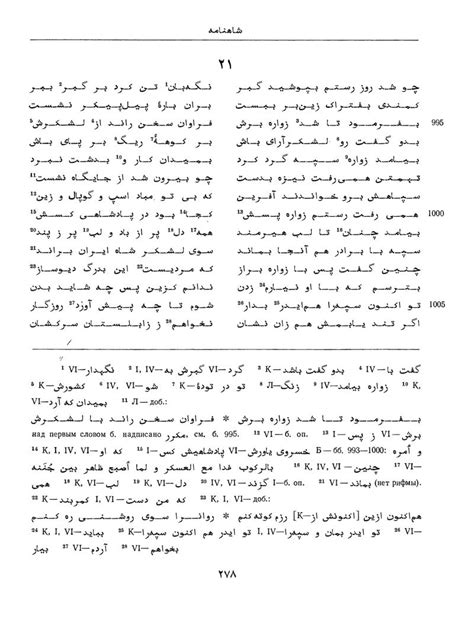 شاهنامه
۲۱
چو شد روز رستم بپوشید گبر نگهبان¹ تن کرد بر گبر² ببر
کمندی بفتراک زین‌بر ببست بران بارهٔ پیل‌پیکر نشست
995 بفرمود تا شد³ زواره برش فراوان سخن راند از⁴ لشکرش⁵
بدو گفت رو⁶ لشکرآرای باش بر کوههٔ⁷ ریگ⁸ بر پای باش
بیامد زواره⁹ سپه گرد کرد بمیدان کار و¹⁰ بدشت نبرد
تهمتن همی‌رفت نیزه بدست چو بیرون شد از جایگاه نشست¹¹
سپاهش برو خواندند آفرین که بی تو مباد اسپ و گوپال و زین¹²
1000 همی رفت رستم زواره پسش¹³ کجا¹⁴ بود در پادشاهی کسش¹⁵
بیامد چنان¹⁶ تا لب هیرمند همه¹⁷ دل¹⁸ پر از باد و لب¹⁹ پر ز پند²⁰
سپه با برادر هم آنجا بماند سوی لشکر شاه ایران براند²¹
چنین گفت پس با زواره براز که مردیست²² این بدرگ دیوساز²³
بترسم که با او نیارم²⁴ زدن ندانم کزین پس چه شاید بدن
1005 تو اکنون سپه‌را هم‌ایدر²⁵ بدار²⁶ شوم تا چه پیش آورد²⁷ روزگار
اگر تند یابمش هم زان نشان نخواهم²⁸ ز زابلستان سرکشان
¹ VI—نگهدار ² I, IV—گبرش به VI—گرد ³ K—بدو گفت باشد ⁴ IV—گفت با
⁵ K—کشورش ⁶ IV, VI—شو ⁷ K—تو در تودهٔ ⁸ Л—زنگ ⁹ IV—زواره بیامد ¹⁰ K,
VI—بمیدان که آرد ¹¹ Л—доб.:
بفرمود تا شد زواره برش * فراوان سخن راند با لشکرش
над первым словом б. надписано مکرر, см. б. 995. ¹² VI—б. оп. ¹³ I—و پس VI—برش
¹⁴ K, I, IV, VI—که او ¹⁵ K—خسروی یاورش VI—پادشاهیش کسش Б—бб. 993—1000: و أمره
بالرکوب غدا مع العسکر و لما أصبح ظاهر بین جُفنه ¹⁶ K, IV, VI—چنین ¹⁷ VI—
همی ¹⁸ K, VI—لب ¹⁹ K, VI—دل ²⁰ IV, VI—گزند I—б. оп. ²¹ VI—بماند (нет рифмы).
²² K—که من دست VI—کمربند ²³ K, I, VI—доб.:
هم‌اکنون ازین [K—اکنونش از] رزم کوته کنم * روانرا سوی روشنی ره کنم
²⁴ K, I, VI—بباید ²⁵ K—تو ایدر هم اکنون سپه‌را I, IV—تو ایدر بمان و سپه‌را ²⁶ VI—
بیار ²⁷ VI—آردم ²⁸ VI—بخواهم
۲۷۸